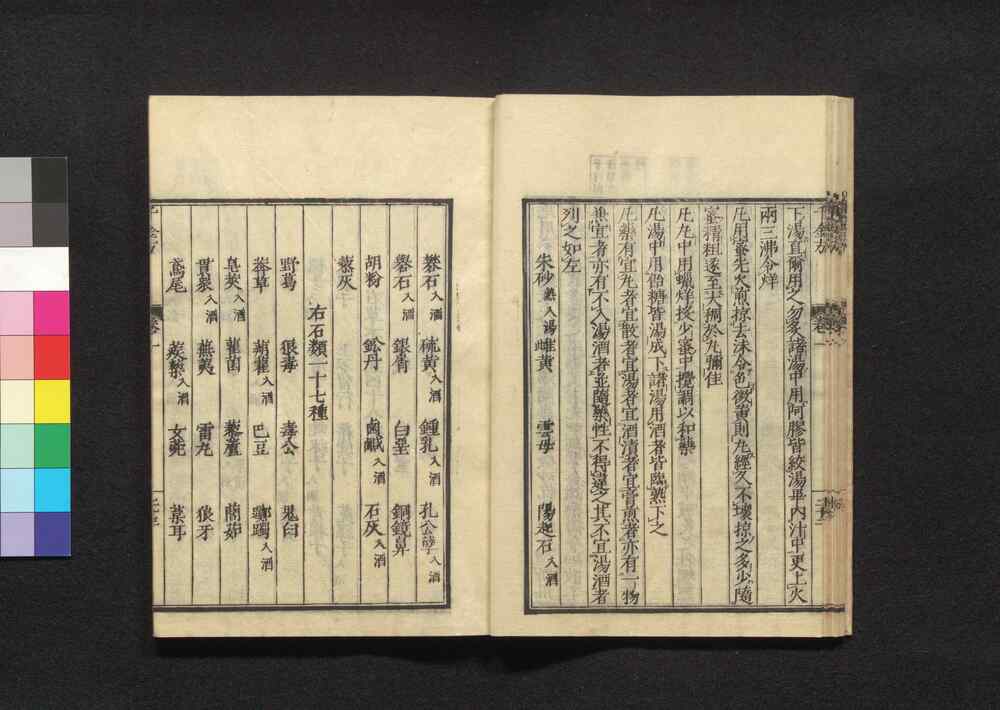 下湯直爾用之勿多諸湯中用阿膠皆絞湯畢內汁中更上火
兩三沸令烊
凡用蜜先火煎掠去沫令色微黃則丸經久不壞掠之多少隨
蜜精粗遂至大稠於丸彌佳
凡丸中用蠟烊投少蜜中攪調以和藥
凡湯中用飴糖皆湯成下諸湯用酒者皆臨熟下之
凡藥有宜丸者宜散者宜湯者宜酒漬者宜膏煎者亦有一物
兼宜者亦有不入湯酒者並隨藥性不得違之其不宜湯酒者
列之如左
朱砂熟入湯 雌黃 雲母 陽起石入酒
礬石入酒 硫黃入酒 鍾乳入酒 孔公孽入酒
礜石入酒 銀屑 白堊 銅鏡鼻
胡粉 鉛丹 鹵鹹入酒 石灰入酒
藜灰
右石類一十七種
野葛 狼毒 毒公 鬼臼
莽草 蒴藋入酒 巴豆 躑躅入酒
皂莢入酒 雚菌 藜蘆 䕡茹
貫眾入酒 蕪荑 雷丸 狼牙
鳶尾 蒺藜入酒 女菀 葈耳
千金方
卷一